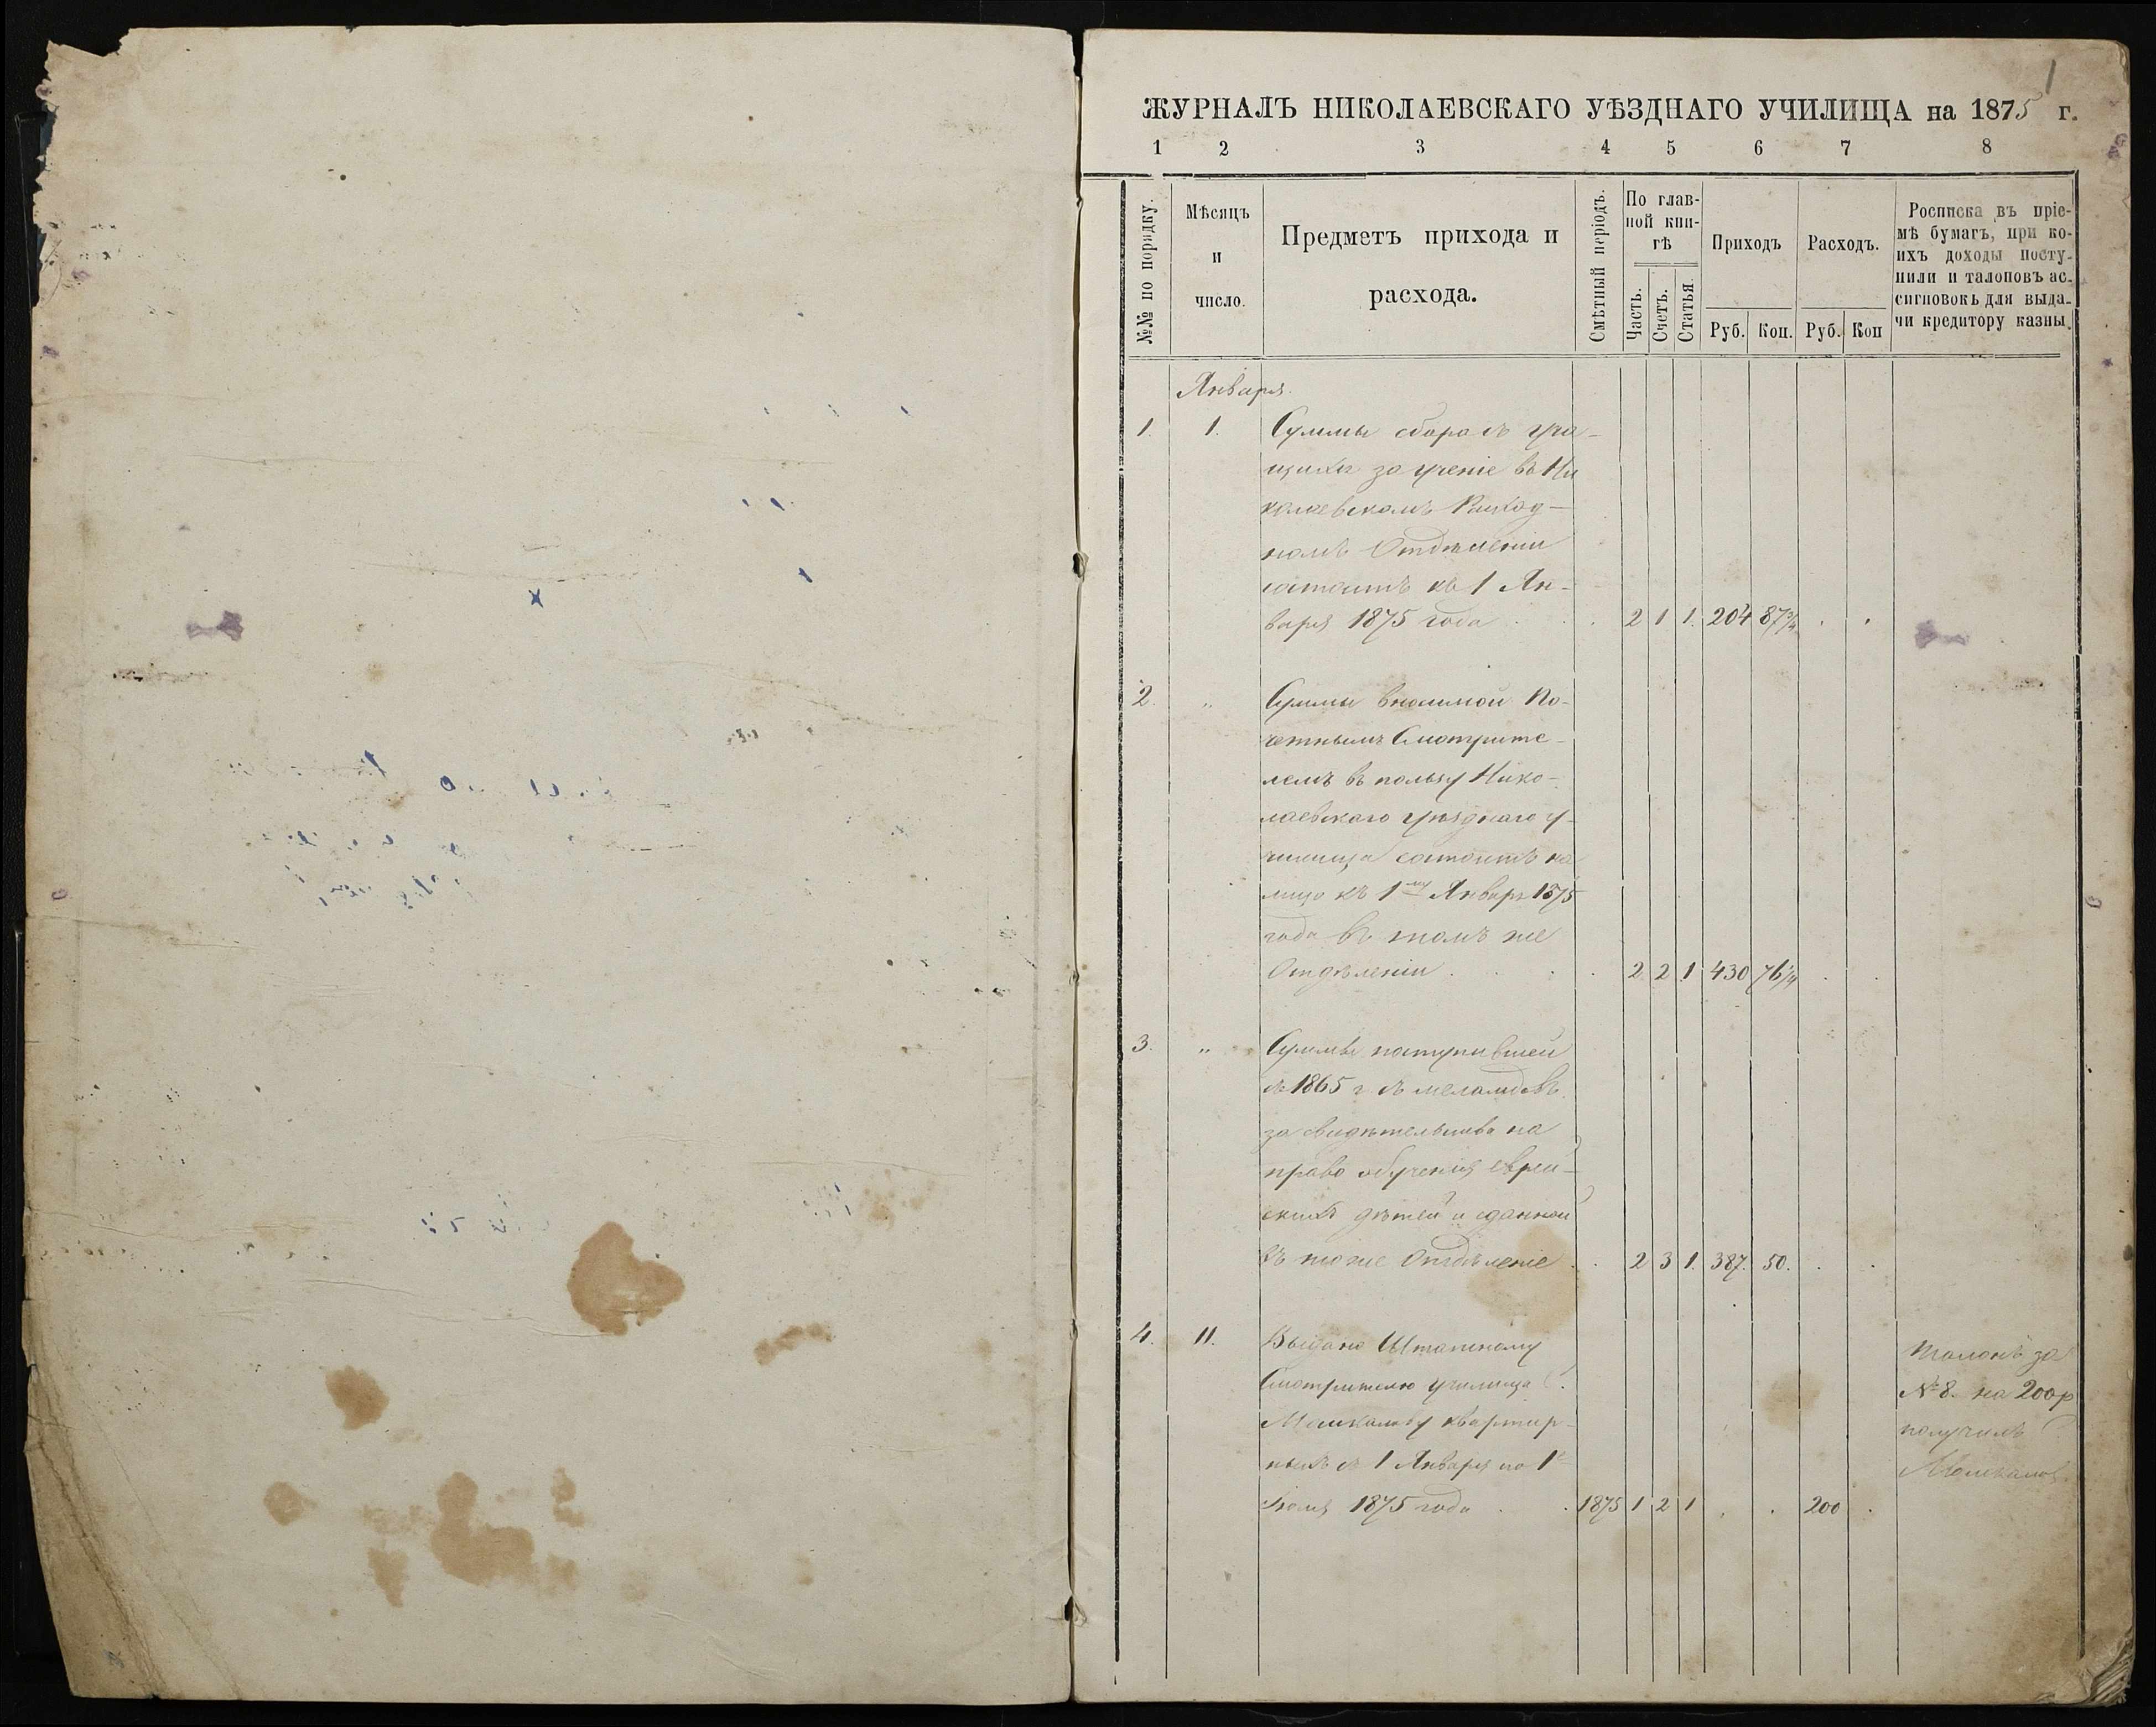 1
ЖУРНАЛЪ НИКОЛАЕВСКАГО УѢЗДНАГО УЧИЛИЩА на 1875 г.
1 2 3 4 5 6 7 8
№№ по порядку.
Мѣсяцъ
и
число.
Предметъ прихода и
расхода.
Смѣтный періодъ.
По глав-
ной кни-
гѣ
Часть.
Счетъ.
Статья.
Приходъ
Руб. Коп.
Расходъ.
Руб. Коп
Росписка въ пріе-
мѣ бумагъ, при ко-
ихъ доходы посту-
пили и талоповъ ас-
сигновокъ для выда-
чи кредитору казны.
Января.
1. 1. Суммы сбора съ уча-
щихся за ученіе въ Ни
колаевскомъ Расход-
номъ Отдѣленіи
состоитъ къ 1 Ян-
варя 1875 года 2 1 1. 204 87 3/4
2. " Суммы вносимой По-
четнымъ Смотрите-
лемъ въ пользу Нико-
лаевскаго уѣзднаго у-
чилища состоитъ на
лицо къ 1му Января 1875
года въ томъ же
Отдѣленіи 2 2 1 430 76 1/4
3. " Суммы поступившей
съ 1865 г. съ меламдовъ
за свидѣтельства на
право обученія еврей-
скихъ дѣтей и сданной
въ тоже Отдѣленіе 2 3 1. 387. 50.
4. 11. Выдано Штатному
Смотрителю училища
квартир-
ныхъ съ 1 Января по 1е
1875 года 1875 1 2 1 200
Талонъ за
№ 8. на 200 р
получилъ